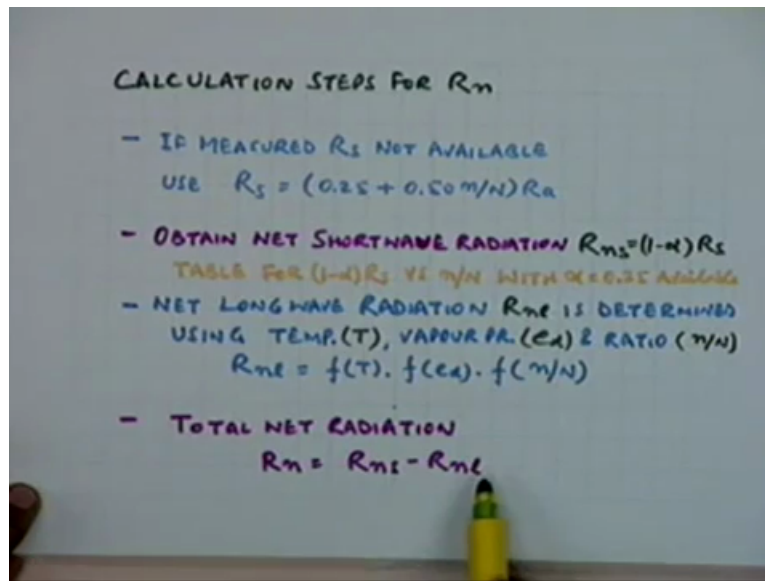 CALCULATION STEPS FOR Rn
- IF MEASURED Rs NOT AVAILABLE
USE Rs = (0.25 + 0.50 n/N) Ra
- OBTAIN NET SHORTWAVE RADIATION Rns = (1-α) Rs
TABLE FOR (1-α) Rs VS n/N WITH α = 0.25 AVAILABLE
- NET LONGWAVE RADIATION Rnl IS DETERMINED
USING TEMP. (T), VAPOUR PR. (ed) & RATIO (n/N)
Rnl = f(T). f(ed). f(n/N)
- TOTAL NET RADIATION
Rn = Rns - Rnl